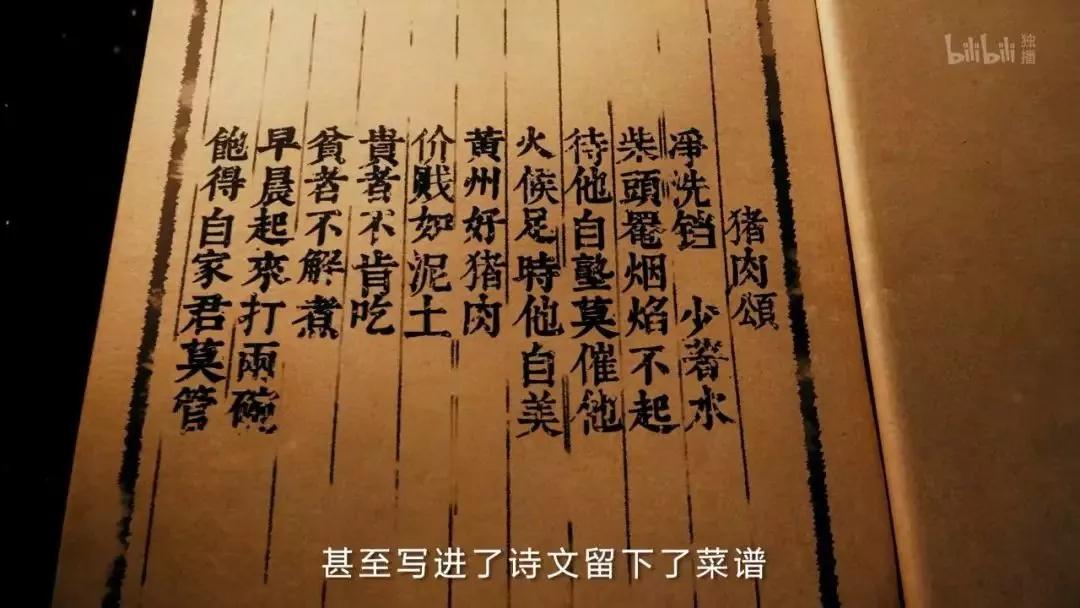 猪肉頌
凈洗铛 少著水
柴頭罨烟焰不起
待他自塾莫催他
火候足時他自美
黄州好猪肉
价贱如泥土
貴者不肯吃
貧者不解煮
早晨起來打兩碗
飽得自家君莫管
bilibili 独播
甚至写进了诗文留下了菜谱